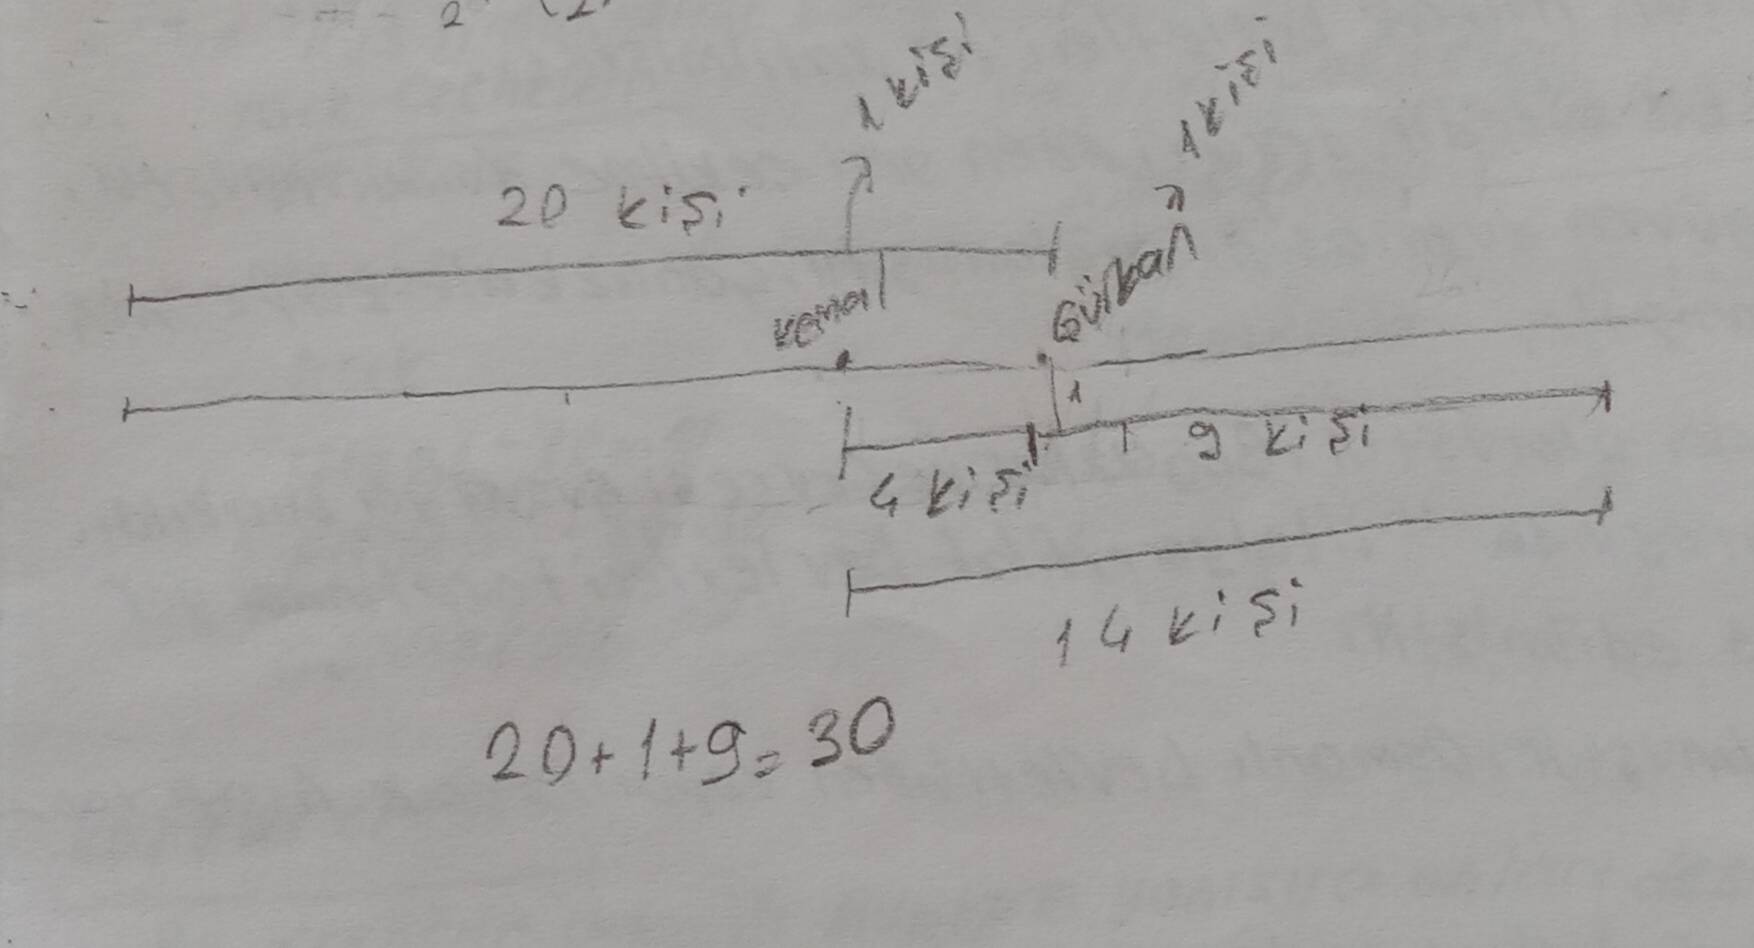 1 kişi
1 kişi
20 kişi
Kemal
Gürkan
1
9 kişi
4 kişi
14 kişi
20+1+9=30